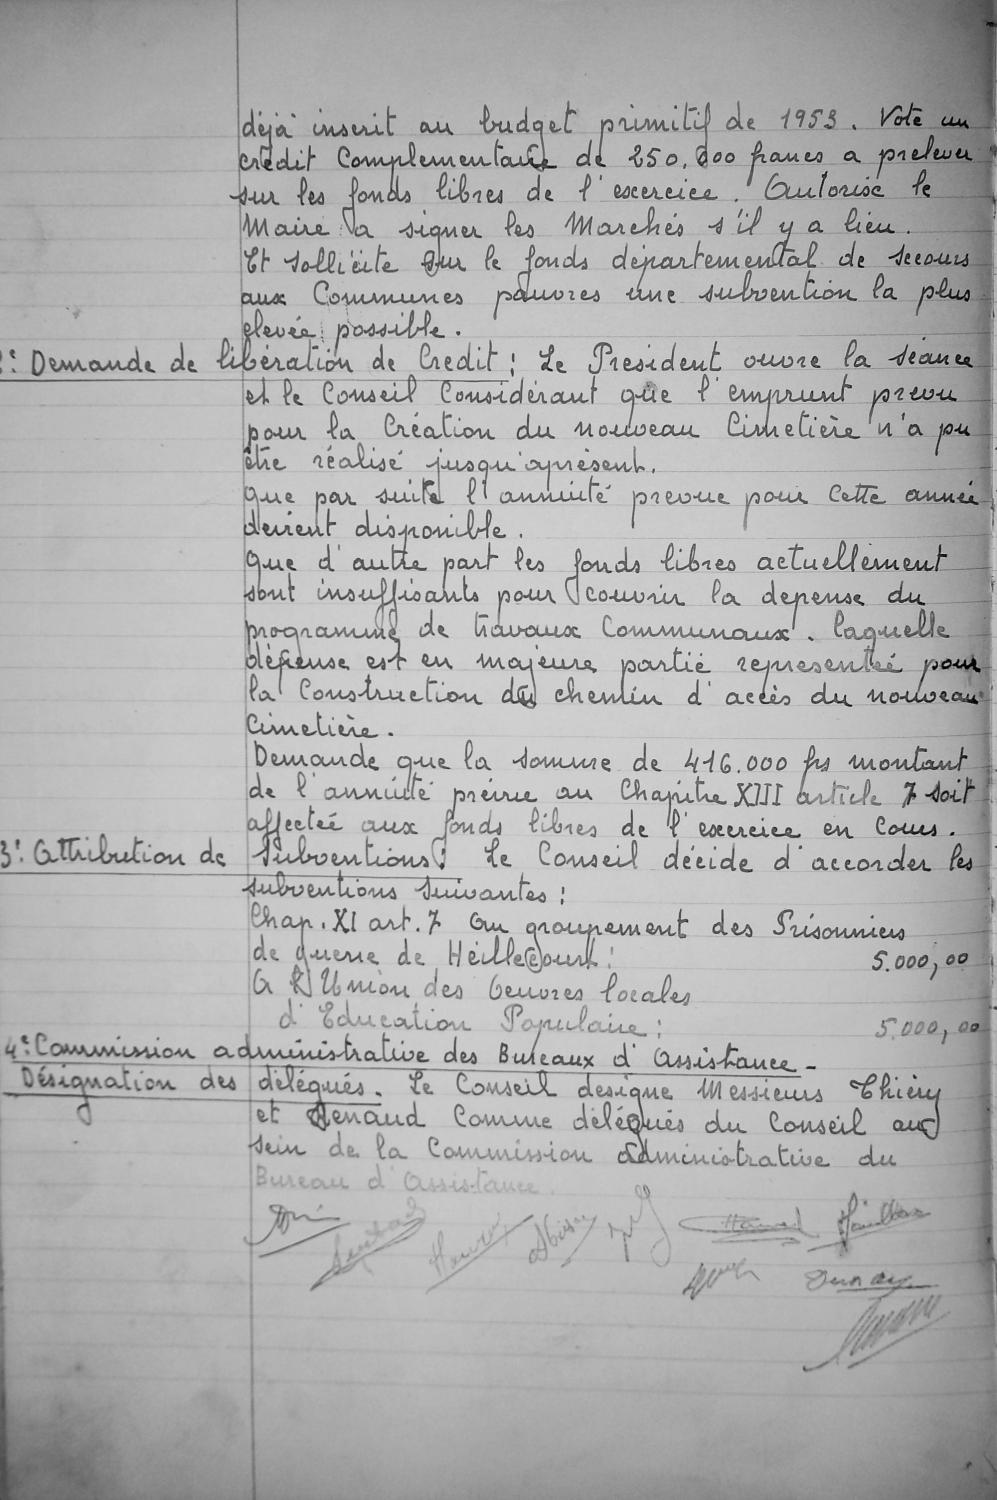 déjà inscrit au budget primitif de 1953. Vote un
crédit Complementaire de 250.000 francs a prelever
sur les fonds libres de l'exercice. Autorise le
Maire a signer les Marchés s'il y a lieu.
Et Sollicite sur le fonds départemental de secours
aux Communes pauvres une subvention la plus
elevée possible.
2: Demande de libération de Credit: Le President ouvre la séance
et le Conseil Considérant que l'emprunt prevu
pour la Création du nouveau Cimetière n'a pu
être réalisé jusqu'aprésent.
que par suite l'annuité prevue pour Cette année
devient disponible.
que d'autre part les fonds libres actuellement
sont insuffisants pour couvrir la depense du
programme de travaux Communaux. laquelle
dépense est en majeure partié representeé pour
la Construction du chemin d'accès du nouveau
Cimetière.
Demande que la somme de 416.000 frs montant
de l'annuité prévue au Chapitre XIII article 7 soit
affecteé aux fonds libres de l'exercice en Cours.
3: Attribution de Subventions: Le Conseil décide d'accorder les
subventions Suivantes:
Chap. XI art. 7 Au groupement des Prisonniers
de guerre de Heillecourt: 5.000,00
A l'Union des Oeuvres locales
d'Education Populaire: 5.000,00
4: Commission administrative des Bureaux d'Assistance -
Désignation des délégués. Le Conseil designe Messieurs Thiéry
et Renaud Comme délégués du Conseil au
sein de la Commission administrative du
Bureau d'Assistance.